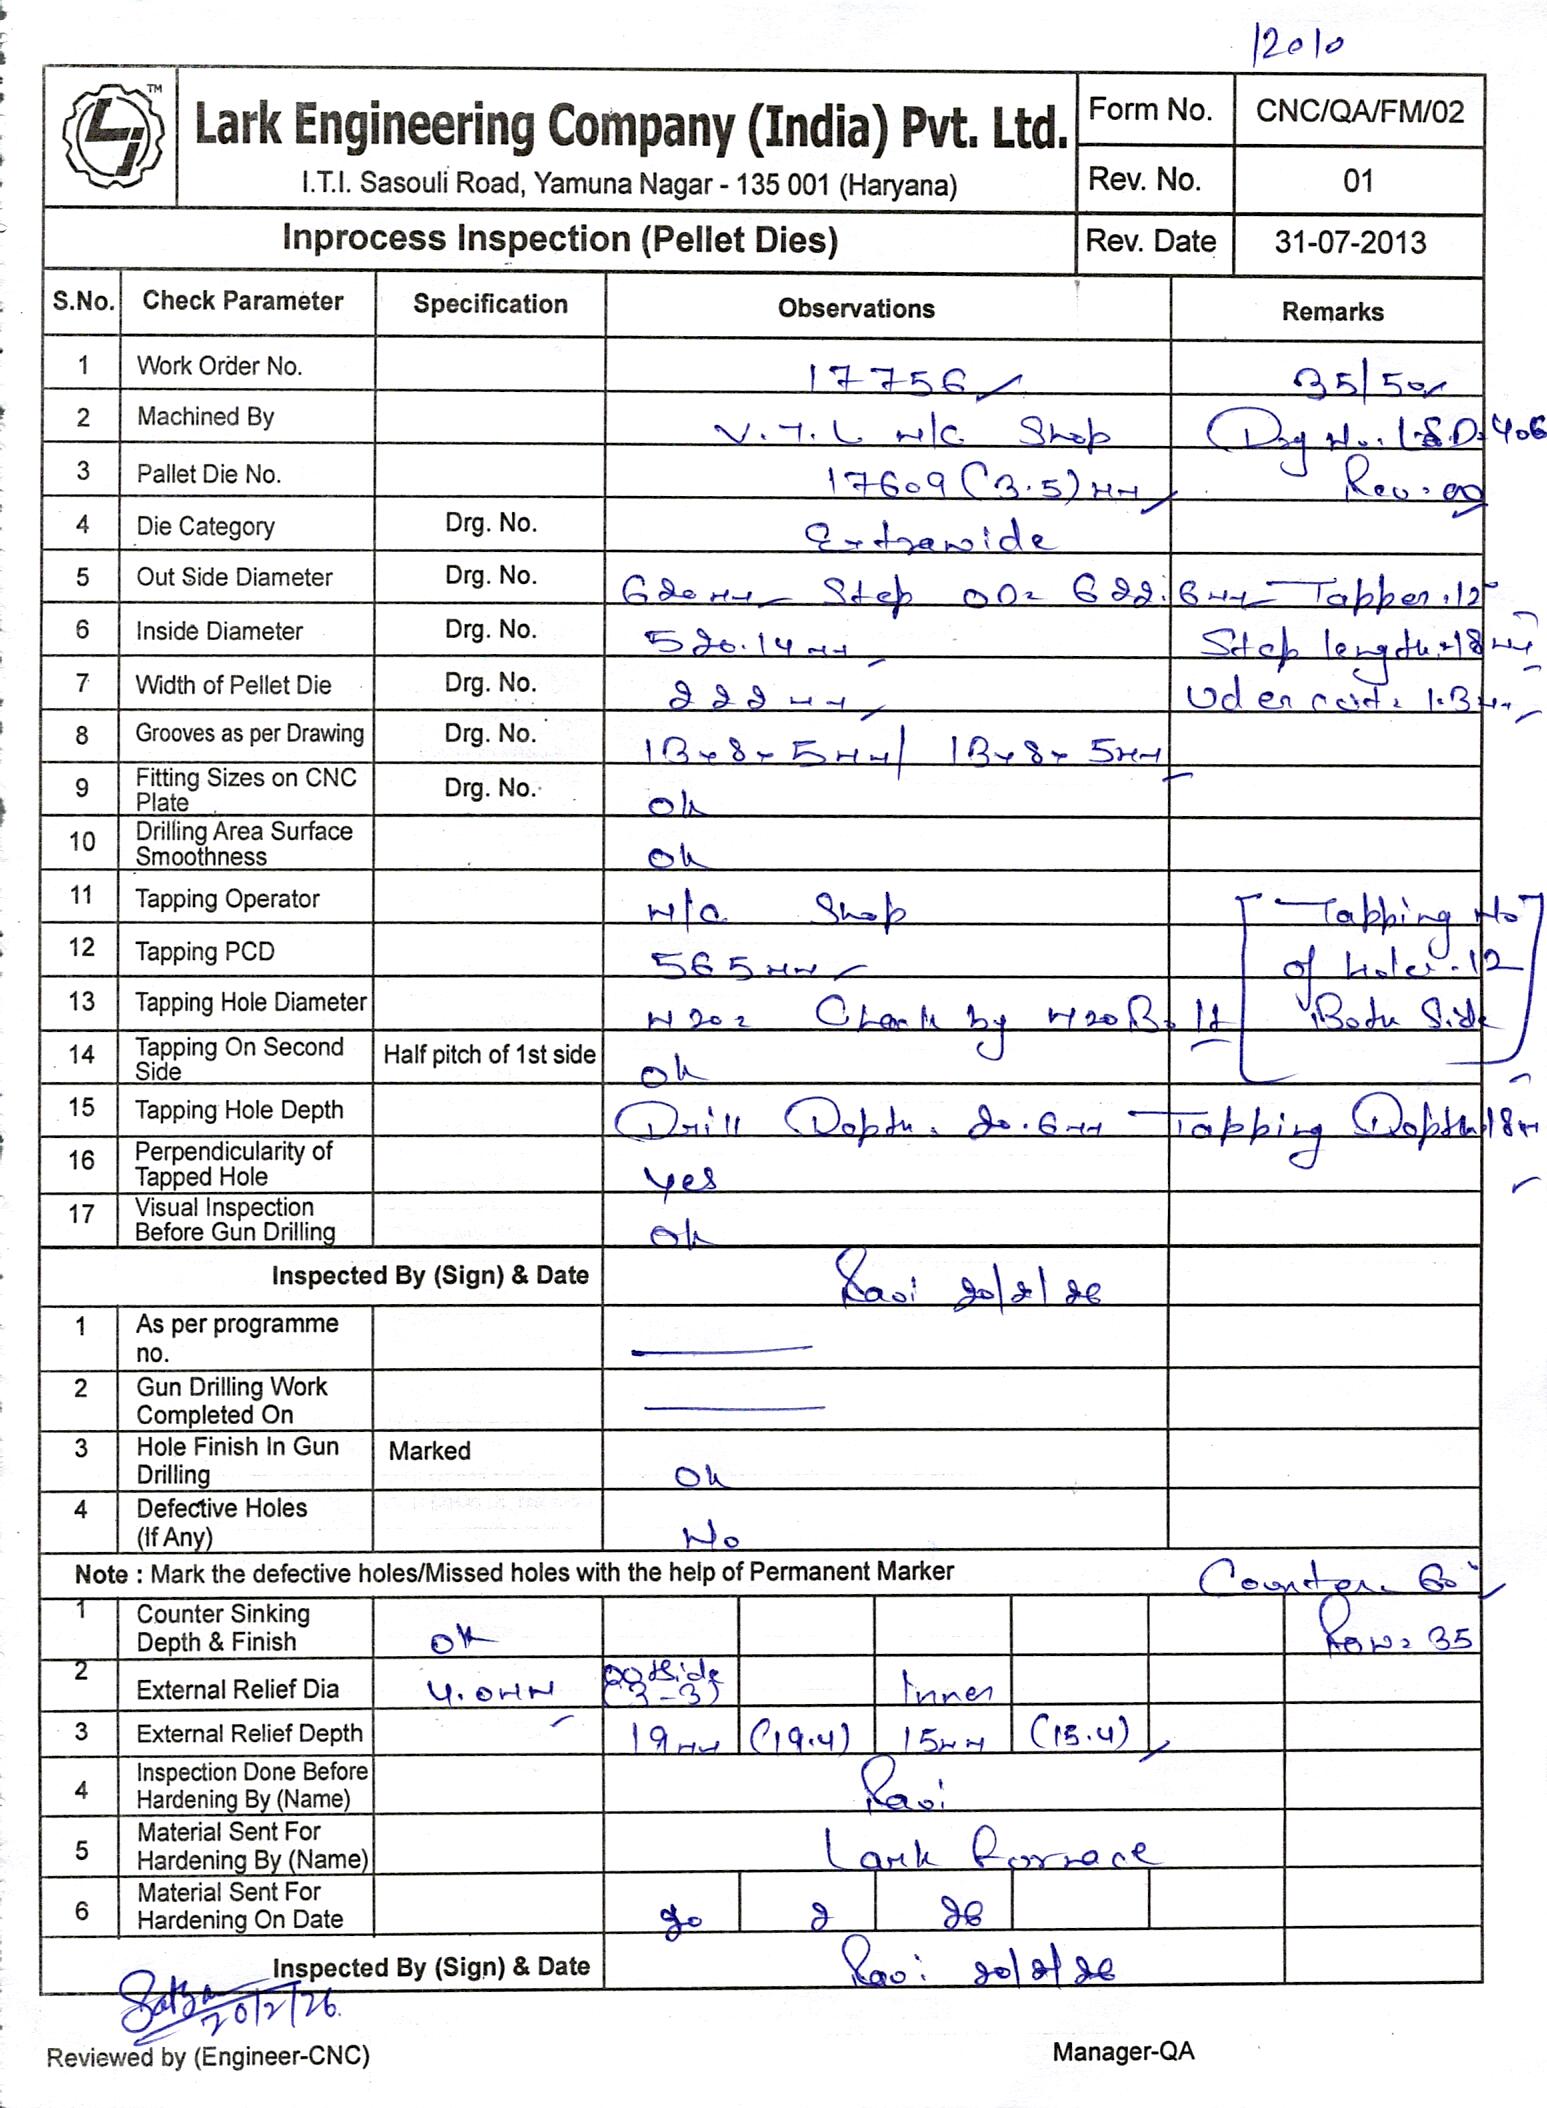 12010
Lark Engineering Company (India) Pvt. Ltd.
I.T.I. Sasouli Road, Yamuna Nagar - 135 001 (Haryana)
Form No. CNC/QA/FM/02
Rev. No. 01
Inprocess Inspection (Pellet Dies) Rev. Date 31-07-2013
S.No. Check Parameter Specification Observations Remarks
1 Work Order No. 17756 35/50
2 Machined By V.T.L M/C Shop Drg No. LSD-406
3 Pallet Die No. 17609 (3.5) MM Rev. 00
4 Die Category Drg. No. Extrawide
5 Out Side Diameter Drg. No. 620MM Step OD= 622.6MM Tapper.12°
6 Inside Diameter Drg. No. 520.14MM Step length=18MM
7 Width of Pellet Die Drg. No. 222MM 1.3MM
8 Grooves as per Drawing Drg. No. 13×8×5MM/ 13×8×5MM
9 Fitting Sizes on CNC Plate Drg. No. Ok
10 Drilling Area Surface Smoothness Ok
11 Tapping Operator M/C Shop Tapping No
12 Tapping PCD 565MM of holes.12
13 Tapping Hole Diameter M20= Check by M20 Both Side
14 Tapping On Second Side Half pitch of 1st side Ok
15 Tapping Hole Depth Drill Depth. 20.6MM Tapping Depth 18M
16 Perpendicularity of Tapped Hole Yes
17 Visual Inspection Before Gun Drilling Ok
Inspected By (Sign) & Date Ravi 20/2/26
1 As per programme no.
2 Gun Drilling Work Completed On
3 Hole Finish In Gun Drilling Marked Ok
4 Defective Holes (If Any) No
Note : Mark the defective holes/Missed holes with the help of Permanent Marker Counter. 60°
1 Counter Sinking Depth & Finish OK Row= 35
2 External Relief Dia 4.0MM Outside (3-3) Inner
3 External Relief Depth 19MM (19.4) 15MM (15.4)
4 Inspection Done Before Hardening By (Name) Ravi
5 Material Sent For Hardening By (Name) Lark Forrnace
6 Material Sent For Hardening On Date 20 2 26
Inspected By (Sign) & Date Ravi 20/2/26
20/2/26.
Reviewed by (Engineer-CNC) Manager-QA